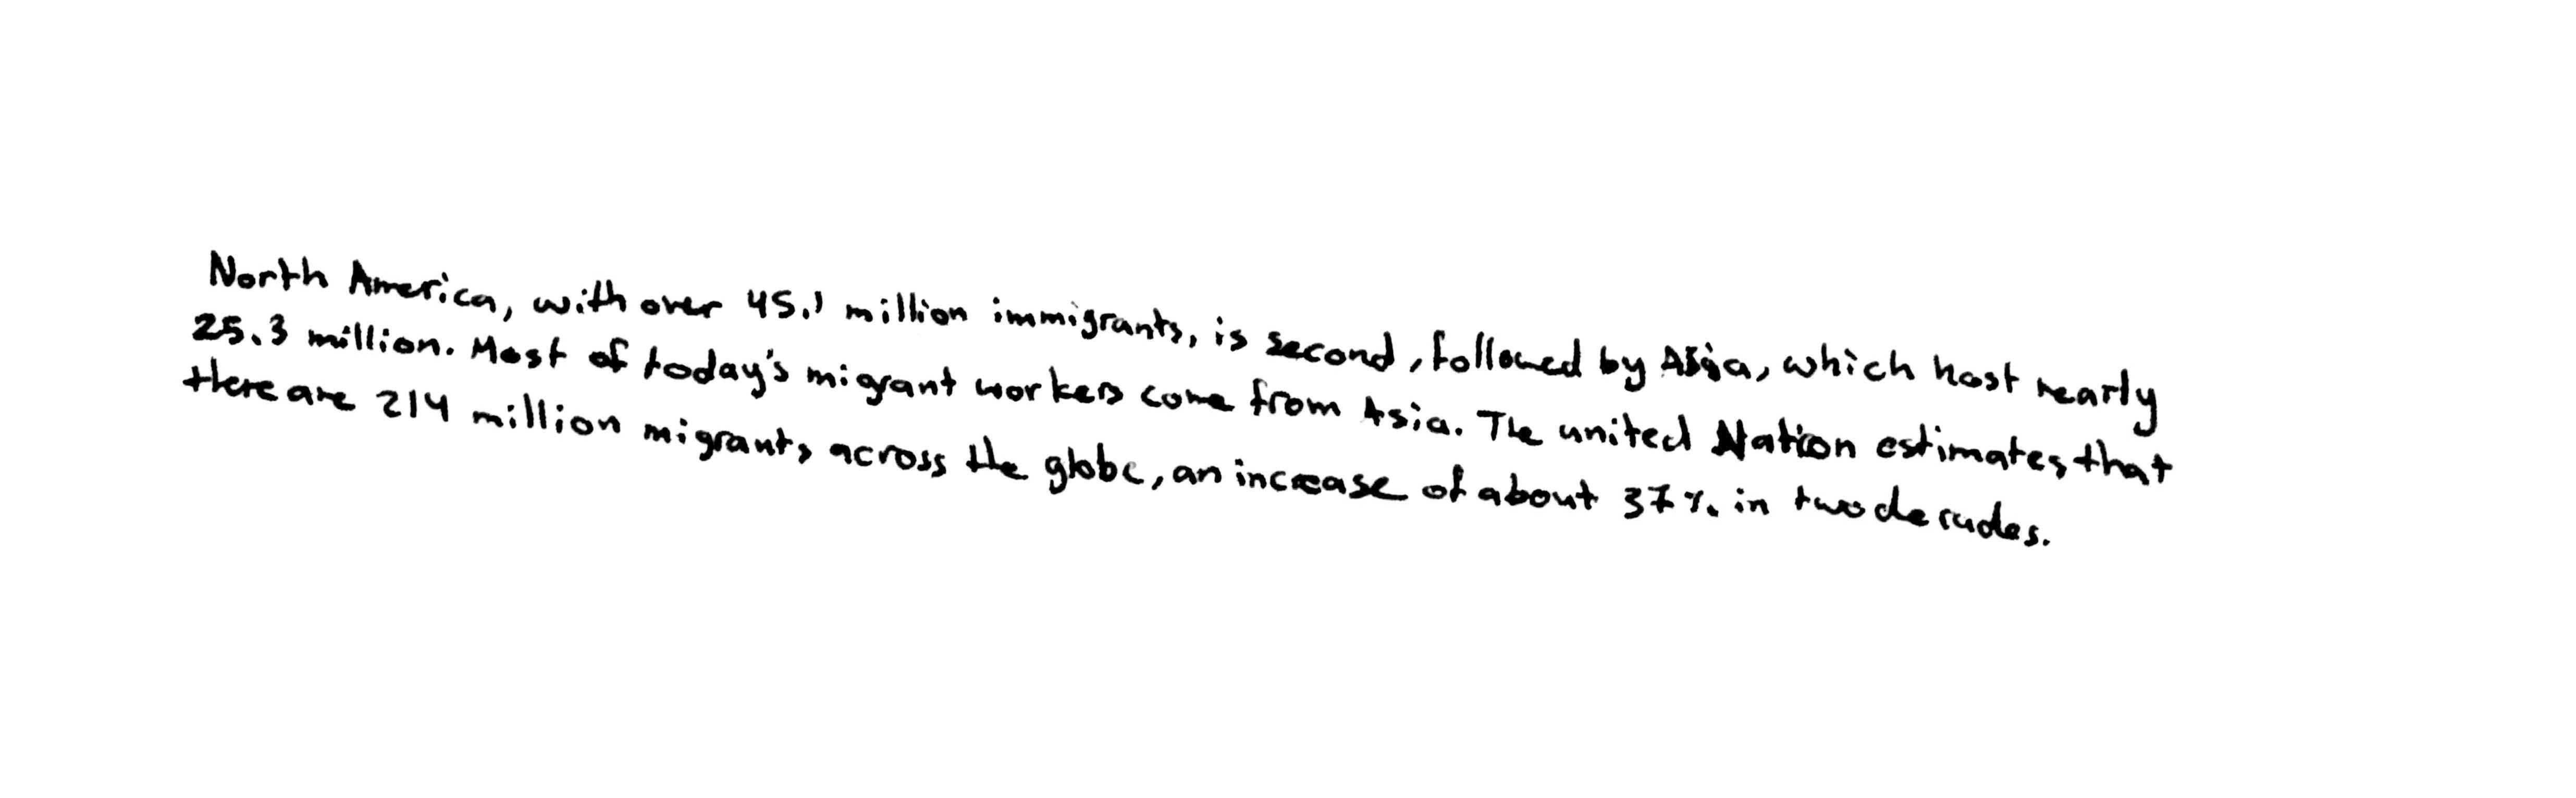 North America, with over 45.1 million immigrants, is second, followed by Asia, which host nearly
25.3 million. Most of today's migrant workers come from Asia. The united Nation estimates that
there are 214 million migrants across the globe, an increase of about 37% in two decades.